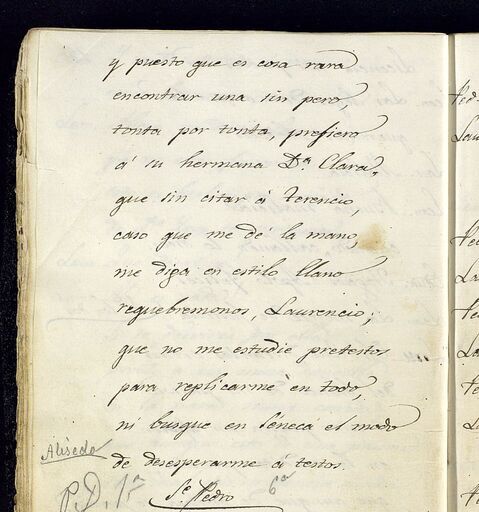 y puesto que es cosa rara
encontrar una sin pero,
tonta por tonta, prefiero
á su hermana Dª Clara,
que sin citar á Terencio,
caso que me dé la mano,
me diga en estilo llano
requebremonos, Laurencio;
que no me estudie pretestos
para replicarme en todo,
ni busque en Séneca el modo
de desesperarme á testos.
Alisedo
P.D. 1ª
Sr. Pedro 6º